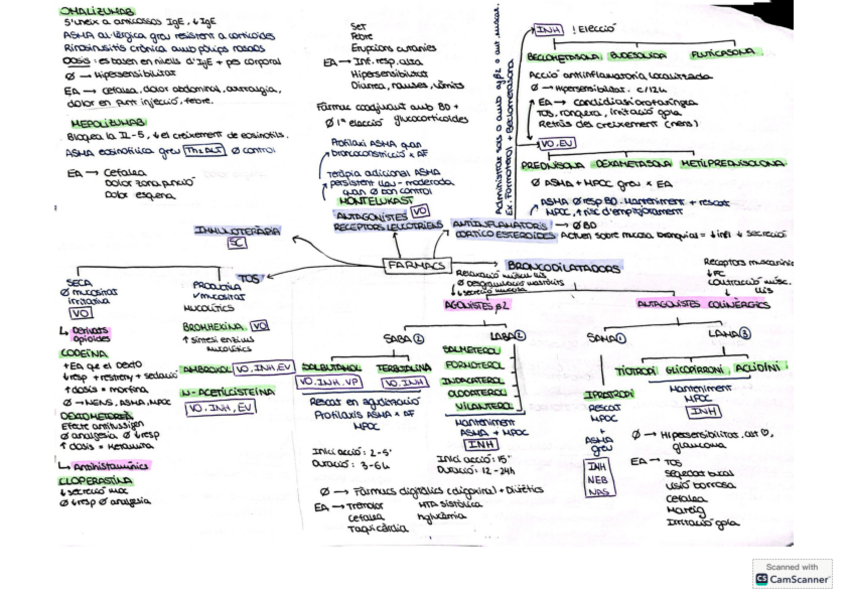 OMALIZUMAB
S'uneix a anticossos IgE, ↓ IgE
ASMA al·lèrgica greu resistent a corticoides
Rinosinusitis crònica amb pòlips nasals
Dosis: es basen en nivells d'IgE + pes corporal
Ø → Hipersensibilitat
EA → Cefalea, dolor abdominal, artràlgia,
dolor en punt injecció, febre.
MEPOLIZUMAB
Bloqueja la IL-5, ↓ el creixement de eosinòfils.
ASMA eosinofílica greu Ø control
EA → Cefalea
Dolor zona punció
Dolor esquena
Set
Febre
Erupcions cutànies
EA → Inf. resp. alta
Hipersensibilitat
Diarrea, nausees, vòmits
Fàrmac coadjuvant amb BD +
Ø 1ª elecció glucocorticoides
Profilaxi ASMA quan
broncoconstricció x AF
Teràpia adicional ASMA
persistent lleu-moderada
quan Ø bon control
MONTELUKAST
ANTAGONISTES VO
RECEPTORS LEUCOTRIENS
Administrar sols o amb agβ2 o ant muscar.
Ex. Formoterol + Beclometasona
INH ! Elecció
BECLOMETASONA BUDESONIDA FLUTICASONA
Acció antiinflamatoria localitzada
Ø → Hipersensibilitat. c/12h
EA → candidiasi orofaríngea
TOS, ronquera, irritació gola
Retràs del creixement (nens)
VO, EV
PREDNISONA DEXAMETASONA METILPREDNISOLONA
Ø ASMA + MPOC greu x EA
ASMA Ø resp BD. Manteniment + rescat
MPOC, ↑ risc d'empitjorament
ANTIINFLAMATORIS → Ø BD
CORTICOESTEROIDES Actuen sobre mucosa bronquial = ↓ infl ↓ secreció
IMMUNOTERÀPIA
SC
FÀRMACS
BRONCODILATADORS
Relaxació múscul llis
Ø Desgranulació mastòcits
↓ secreció mucosa
Receptors muscarínics
↓ FC
contracció músc.
llis
TOS
SECA
Ø mucositat
irritativa
VO
↳ Derivats
opioides
CODEÏNA
+EA que el Dexto
↓ resp + restreny + sedació
↑ dosis = morfina
Ø → NENS, ASMA, MPOC
Efecte antitussigen
Ø analgèsia Ø ↓ resp
↑ dosis = Ketamina
↳ Antihistamínics
CLOPERASTINA
↓ secreció moc
Ø ↓ resp Ø analgèsia
PRODUCTIVA
✓ mucositat
MUCOLÍTICS
BROMHEXINA VO
↑ síntesi enzims
mucolítics
AMBROXOL VO, INH, EV
N-ACETILCISTEÏNA
VO, INH, EV
AGONISTES β2
SABA ②
SALBUTAMOL TERBUTALINA
VO, INH, VP VO, INH
Rescat en agudització
Profilaxis ASMA x AF
MPOC
Inici acció: 2-5'
Duració: 3-6h
LABA ②
SALMETEROL
FORMOTEROL
INDACATEROL
OLODATEROL
VILANTEROL
Manteniment
ASMA + MPOC
INH
Inici acció: 15'
Duració: 12-24h
Ø → Fàrmacs digitàlics (digoxina) + Diürètics
EA → Tremolor HTA sistòlica
Cefalea hglucèmia
Taquicàrdia
ANTAGONISTES COLINÈRGICS
SAMA ①
IPRATROPI
RESCAT
MPOC
+
ASMA
greu
INH
NEB
NAS
LAMA ③
TIOTROPI GLICOPIRRONI ACLIDINI
Manteniment
MPOC
INH
Ø → Hipersensibilitat, alt ♡,
glaucoma
EA → TOS
Sequedat bucal
Visió borrosa
Cefalea
Mareig
Irritació gola
Scanned with
CS CamScanner